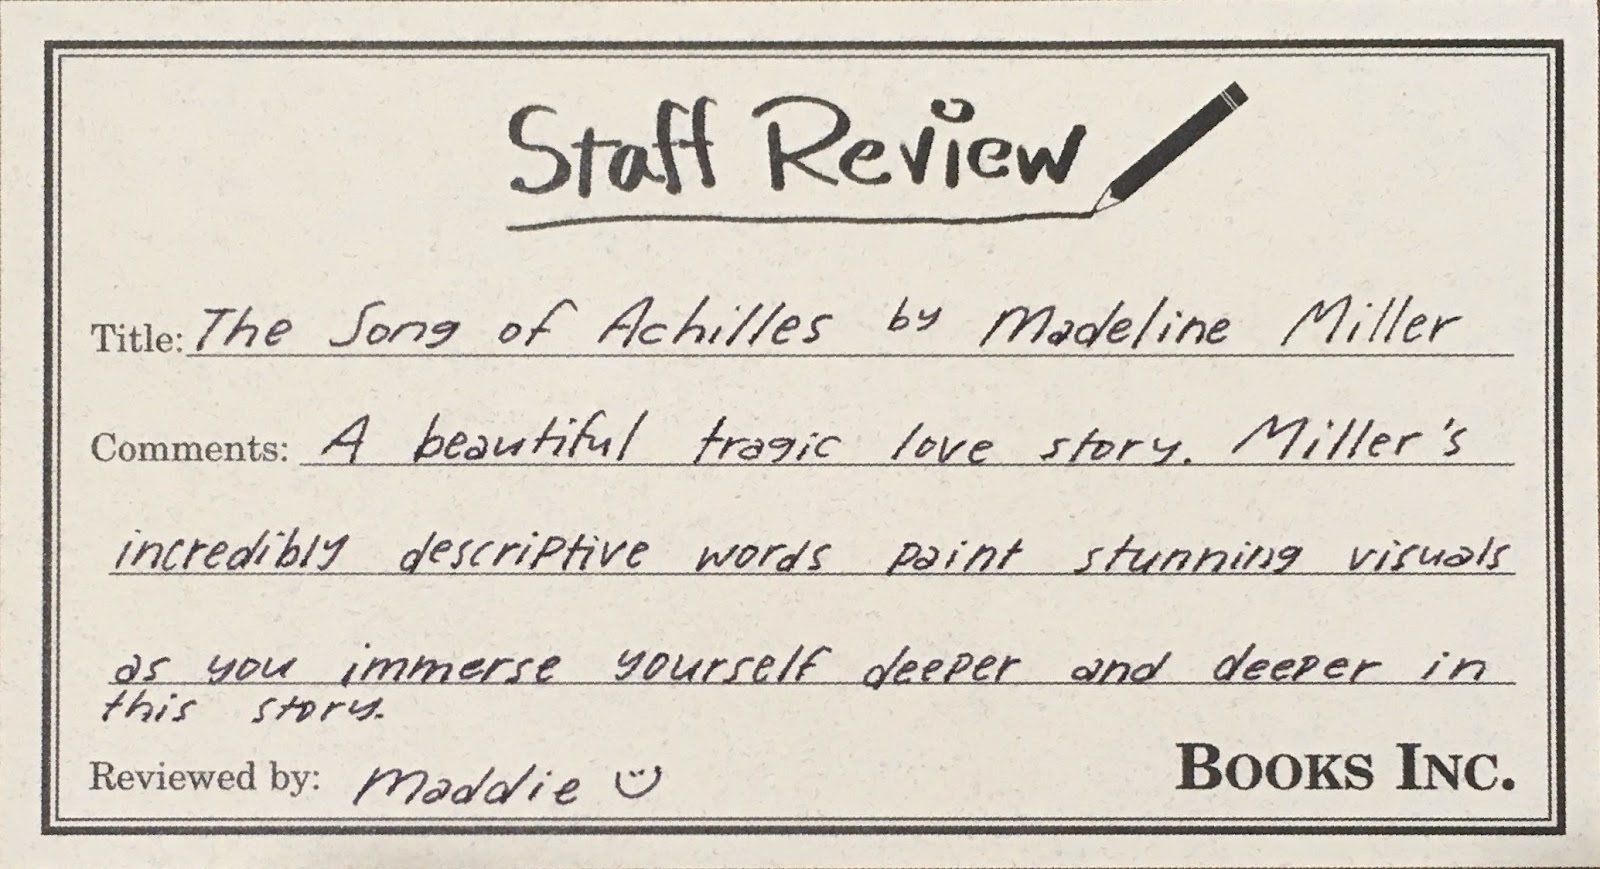 Staff Review
Title: The Song of Achilles by Madeline Miller
Comments: A beautiful tragic love story. Miller's
incredibly descriptive words paint stunning visuals
as you immerse yourself deeper and deeper in
this story.
Reviewed by: Maddie
BOOKS INC.